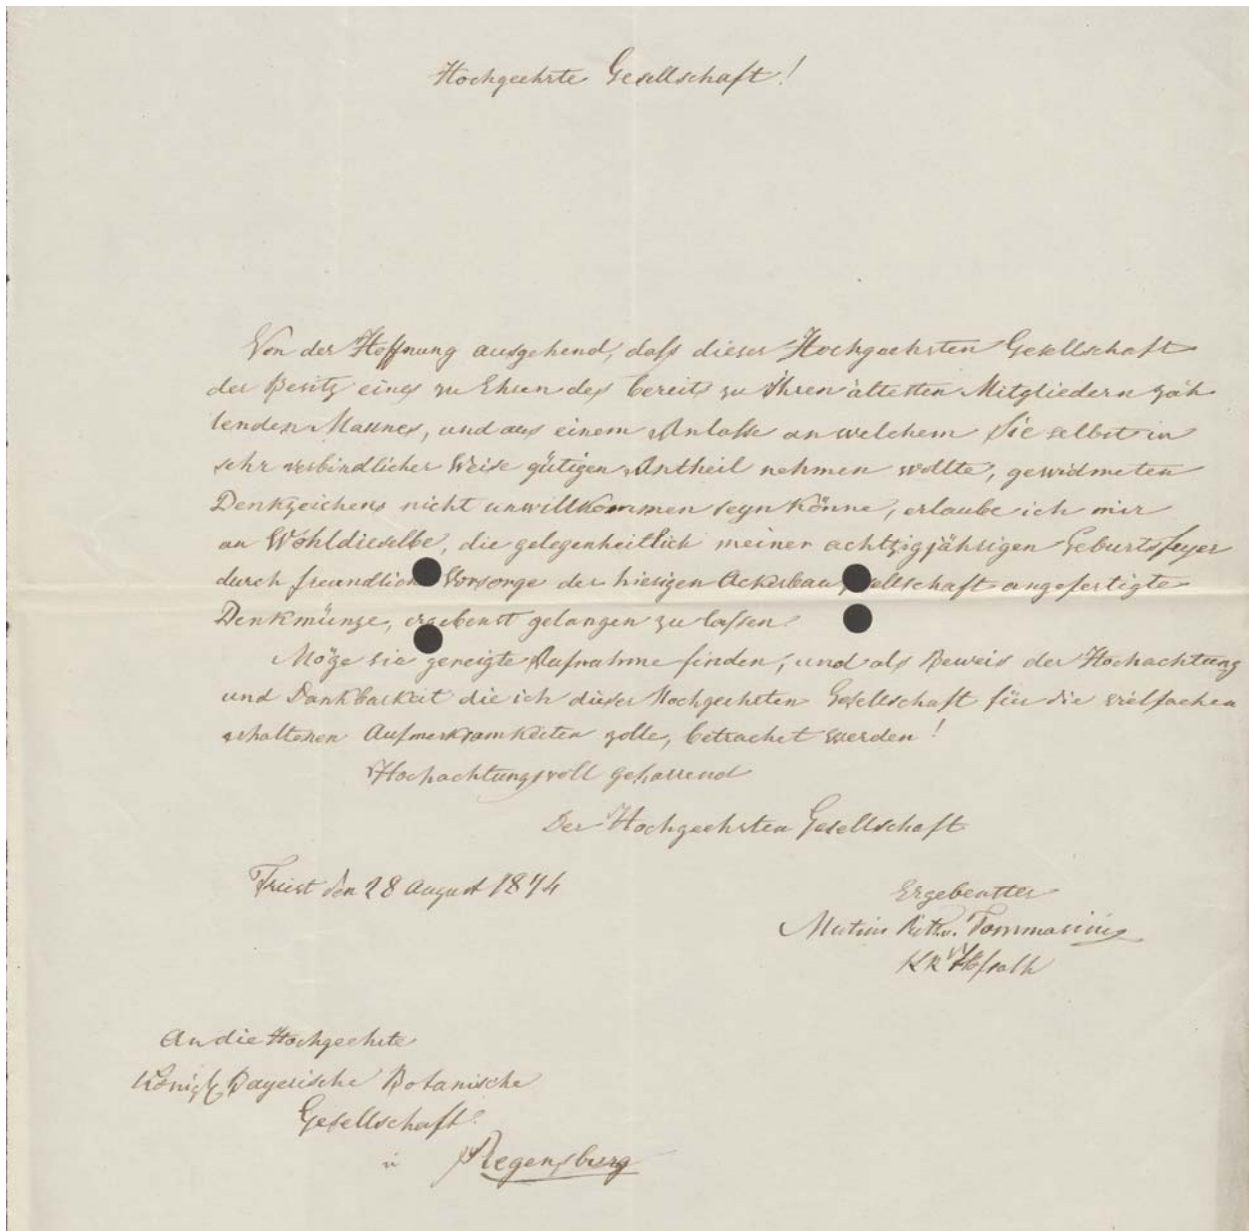 Hochgeehrte Gesellschaft!
Von der Hoffnung ausgehend, daß dieser Hochgeehrten Gesellschaft
der Besitz eines zu Ehren des bereits zu Ihren ältesten Mitgliedern zäh
lenden Mannes, und aus einem Anlasse an welchem Sie selbst in
sehr verbindlicher Weise gütigen Antheil nehmen wollte, gewidmeten
Denkzeichens nicht unwillkommen seyn könne, erlaube ich mir
an Wohldieselbe, die gelegenheitlich meiner achtzigjährigen Geburtsfeyer
durch freundliche Vorsorge der hiesigen Ackerbau sellschaft angefertigte
Denkmünze, ergebenst gelangen zu lassen.
Möge sie geneigte Aufnahme finden, und als Beweis der Hochachtung
und Dankbarkeit die ich dieser Hochgeehrten Gesellschaft für die vielfachen
erhaltenen Aufmerksamkeiten zolle, betrachet werden!
Hochachtungsvoll geharrend
Der Hochgeehrten Gesellschaft
Triest den 28 August 1874
Ergebenster
Mutius Ritt. v. Tommasini
KK Hofrath
An die Hochgeehrte
Königl. Bayerische Botanische
Gesellschaft
in Regensburg